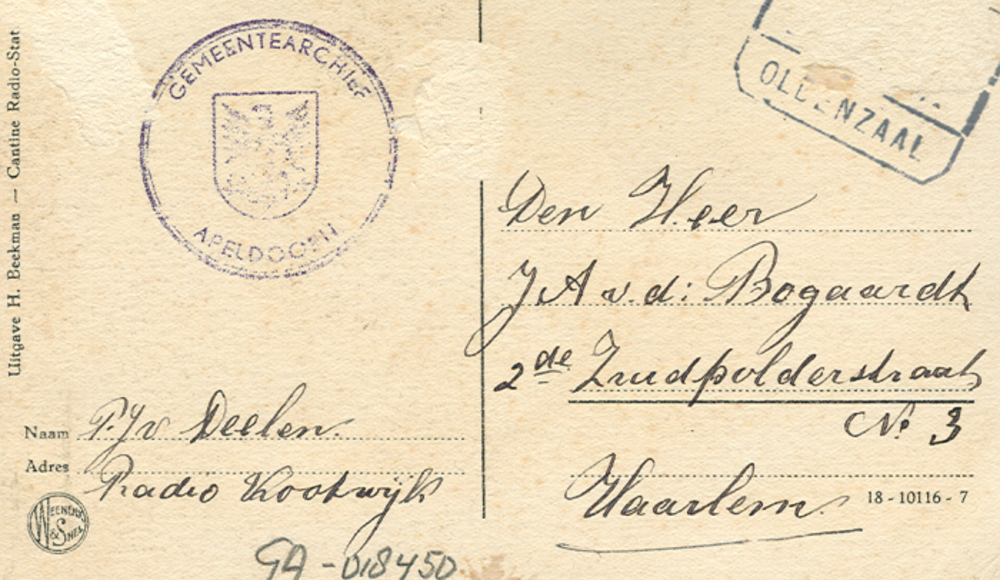 Uitgave H. Beekman — Cantine Radio-Stat
GEMEENTEARCHIEF
APELDOORN
OLDENZAAL
Den Heer
J A v. d. Bogaardt
2de Zuidpolderstraat
No 3
Haarlem
18-10116-7
Naam P. J. v Deelen.
Adres Radio Kootwijk
WEENENK & SNEL
GA-018450